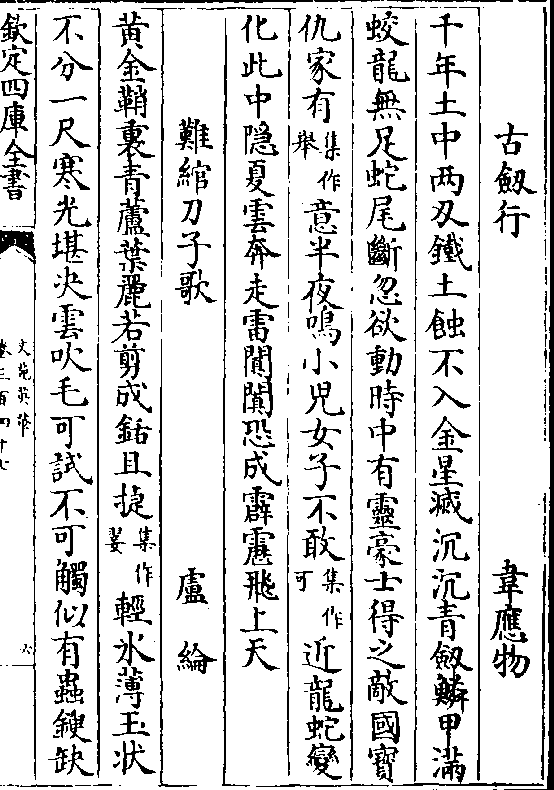 古劔行　韋應物
千年土中两刃鐵土蝕不入金星滅沉沉青劔鱗甲滿
蛟龍無足蛇尾斷忽欲動時中有靈豪士得之敵國寶
仇家有集作舉意半夜鳴小兒女子不敢集作可近龍蛇變
化此中隠夏雲奔走雷闐闐恐成霹靂飛上天
難綰刀子歌　盧綸
黄金鞘裏青蘆葉麗若剪成銛且㨗集作翣輕氷薄玉状
不分一尺寒光堪决雲吹毛可試不可觸似有蟲鎪缺
欽定四庫全書
文苑英華
卷三百四十七
六